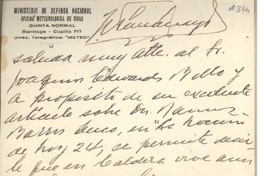 MINISTERIO DE DEFENSA NACIONAL
OFICINA METEOROLOGICA DE CHILE
QUINTA NORMAL
Santiago - Casilla 717
Direc. Telegráfica: "METEO"
A344
saluda muy atte. al Sr.
Joaquín Edwards Bello y
a propósito de un excelente
artículo sobre Dn.
Barros en "La Nación"
de hoy 24, se permite decir
le que en Caldera vive aun